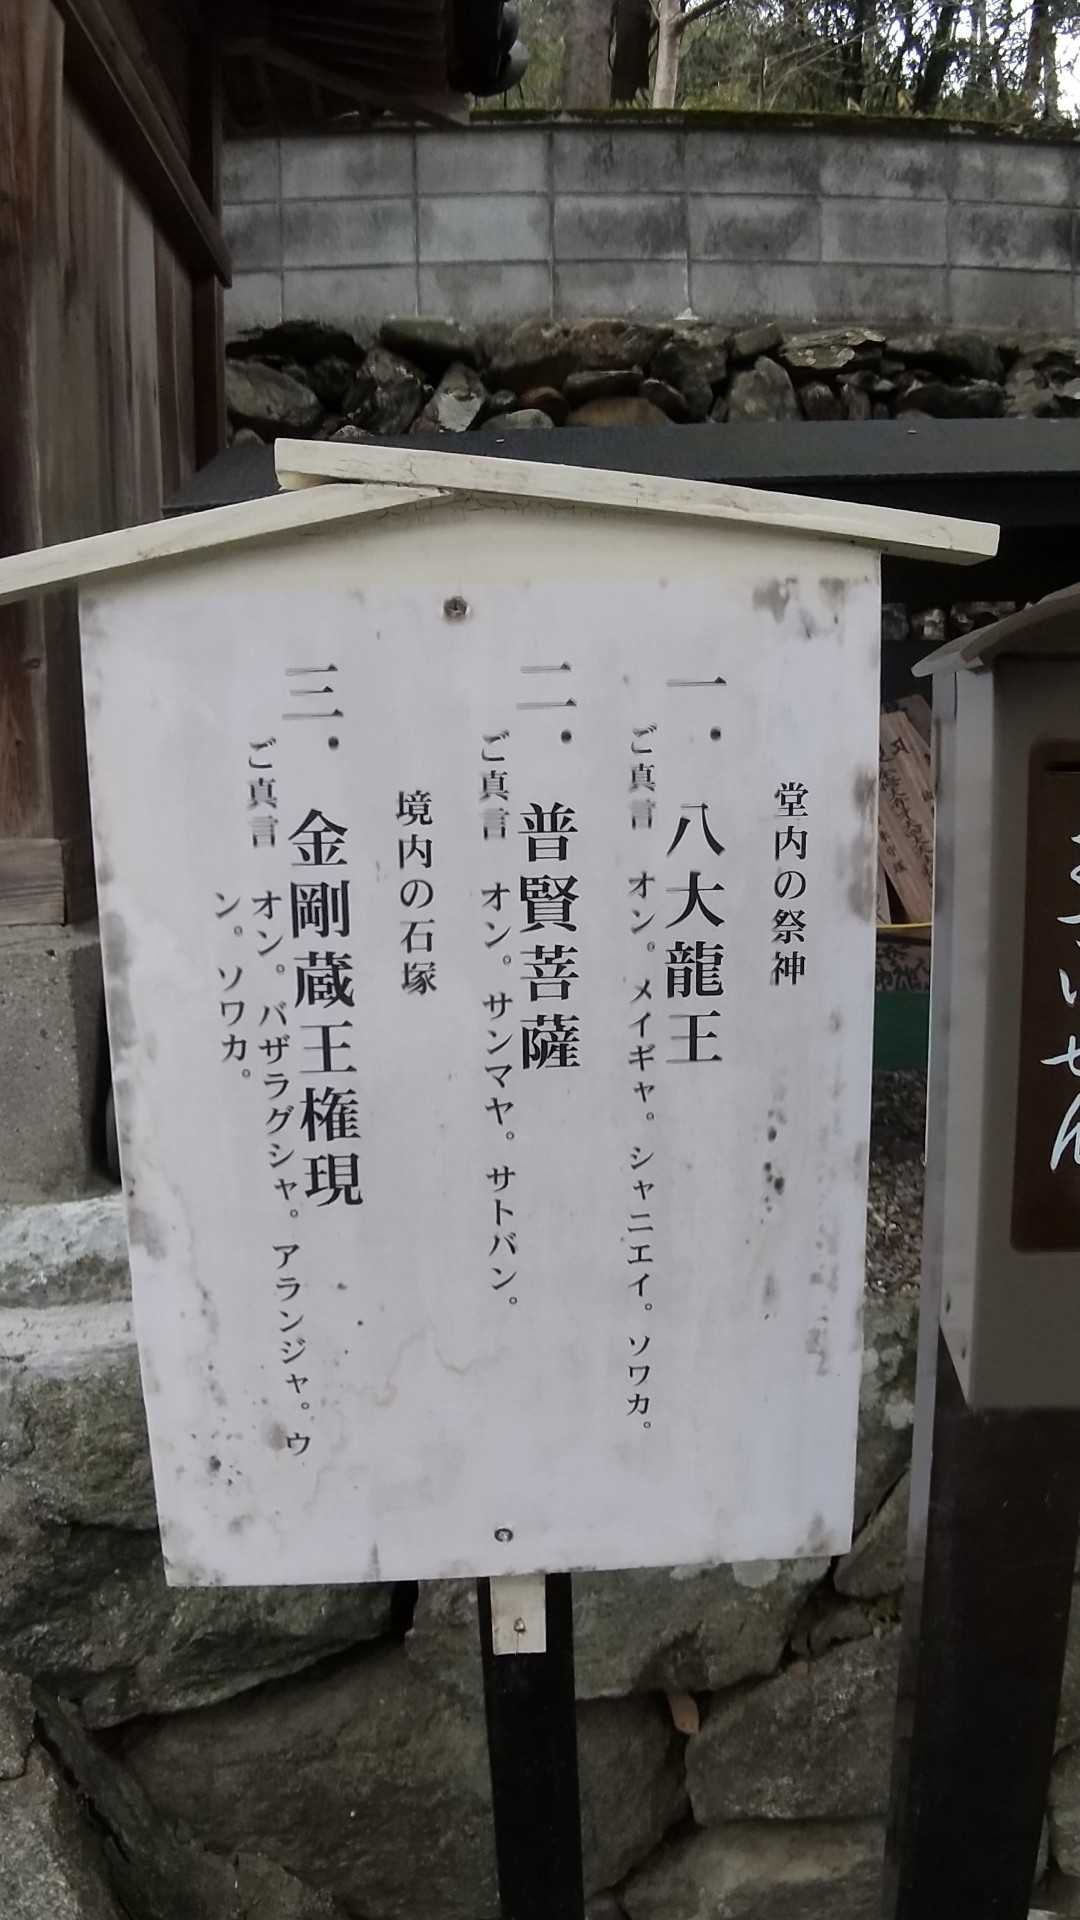 堂内の祭神
一．八大龍王
ご真言　オン。メイギャ。シャニエイ。ソワカ。
二．普賢菩薩
ご真言　オン。サンマヤ。サトバン。
境内の石塚
三．金剛蔵王権現
ご真言　オン。バザラグシャ。アランジャ。ウ
ン。ソワカ。